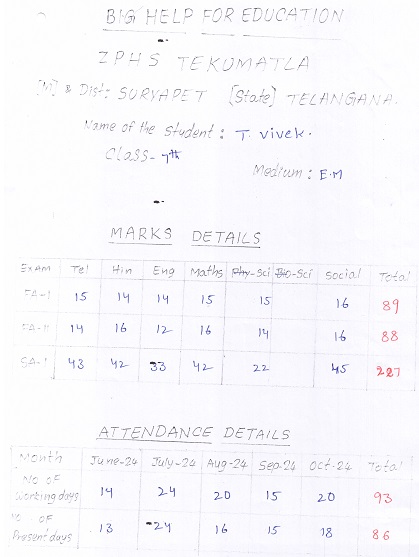 BIG HELP FOR EDUCATION
ZPHS TEKUMATLA
[M] & Dist: SURYAPET [State] TELANGANA.
Name of the Student : T. vivek.
Class - 7th
Medium : E.M
MARKS DETAILS
Exam Tel Hin Eng Maths Phy-Sci Bio-Sci Social Total
FA-I 15 14 14 15 15 16 89
FA-II 14 16 12 16 14 16 88
SA-1 43 42 33 42 22 45 227
ATTENDANCE DETAILS
Month June-24 July-24 Aug-24 Sep-24 Oct-24 Total
No of
Working days 14 24 20 15 20 93
No of
Present days 13 24 16 15 18 86